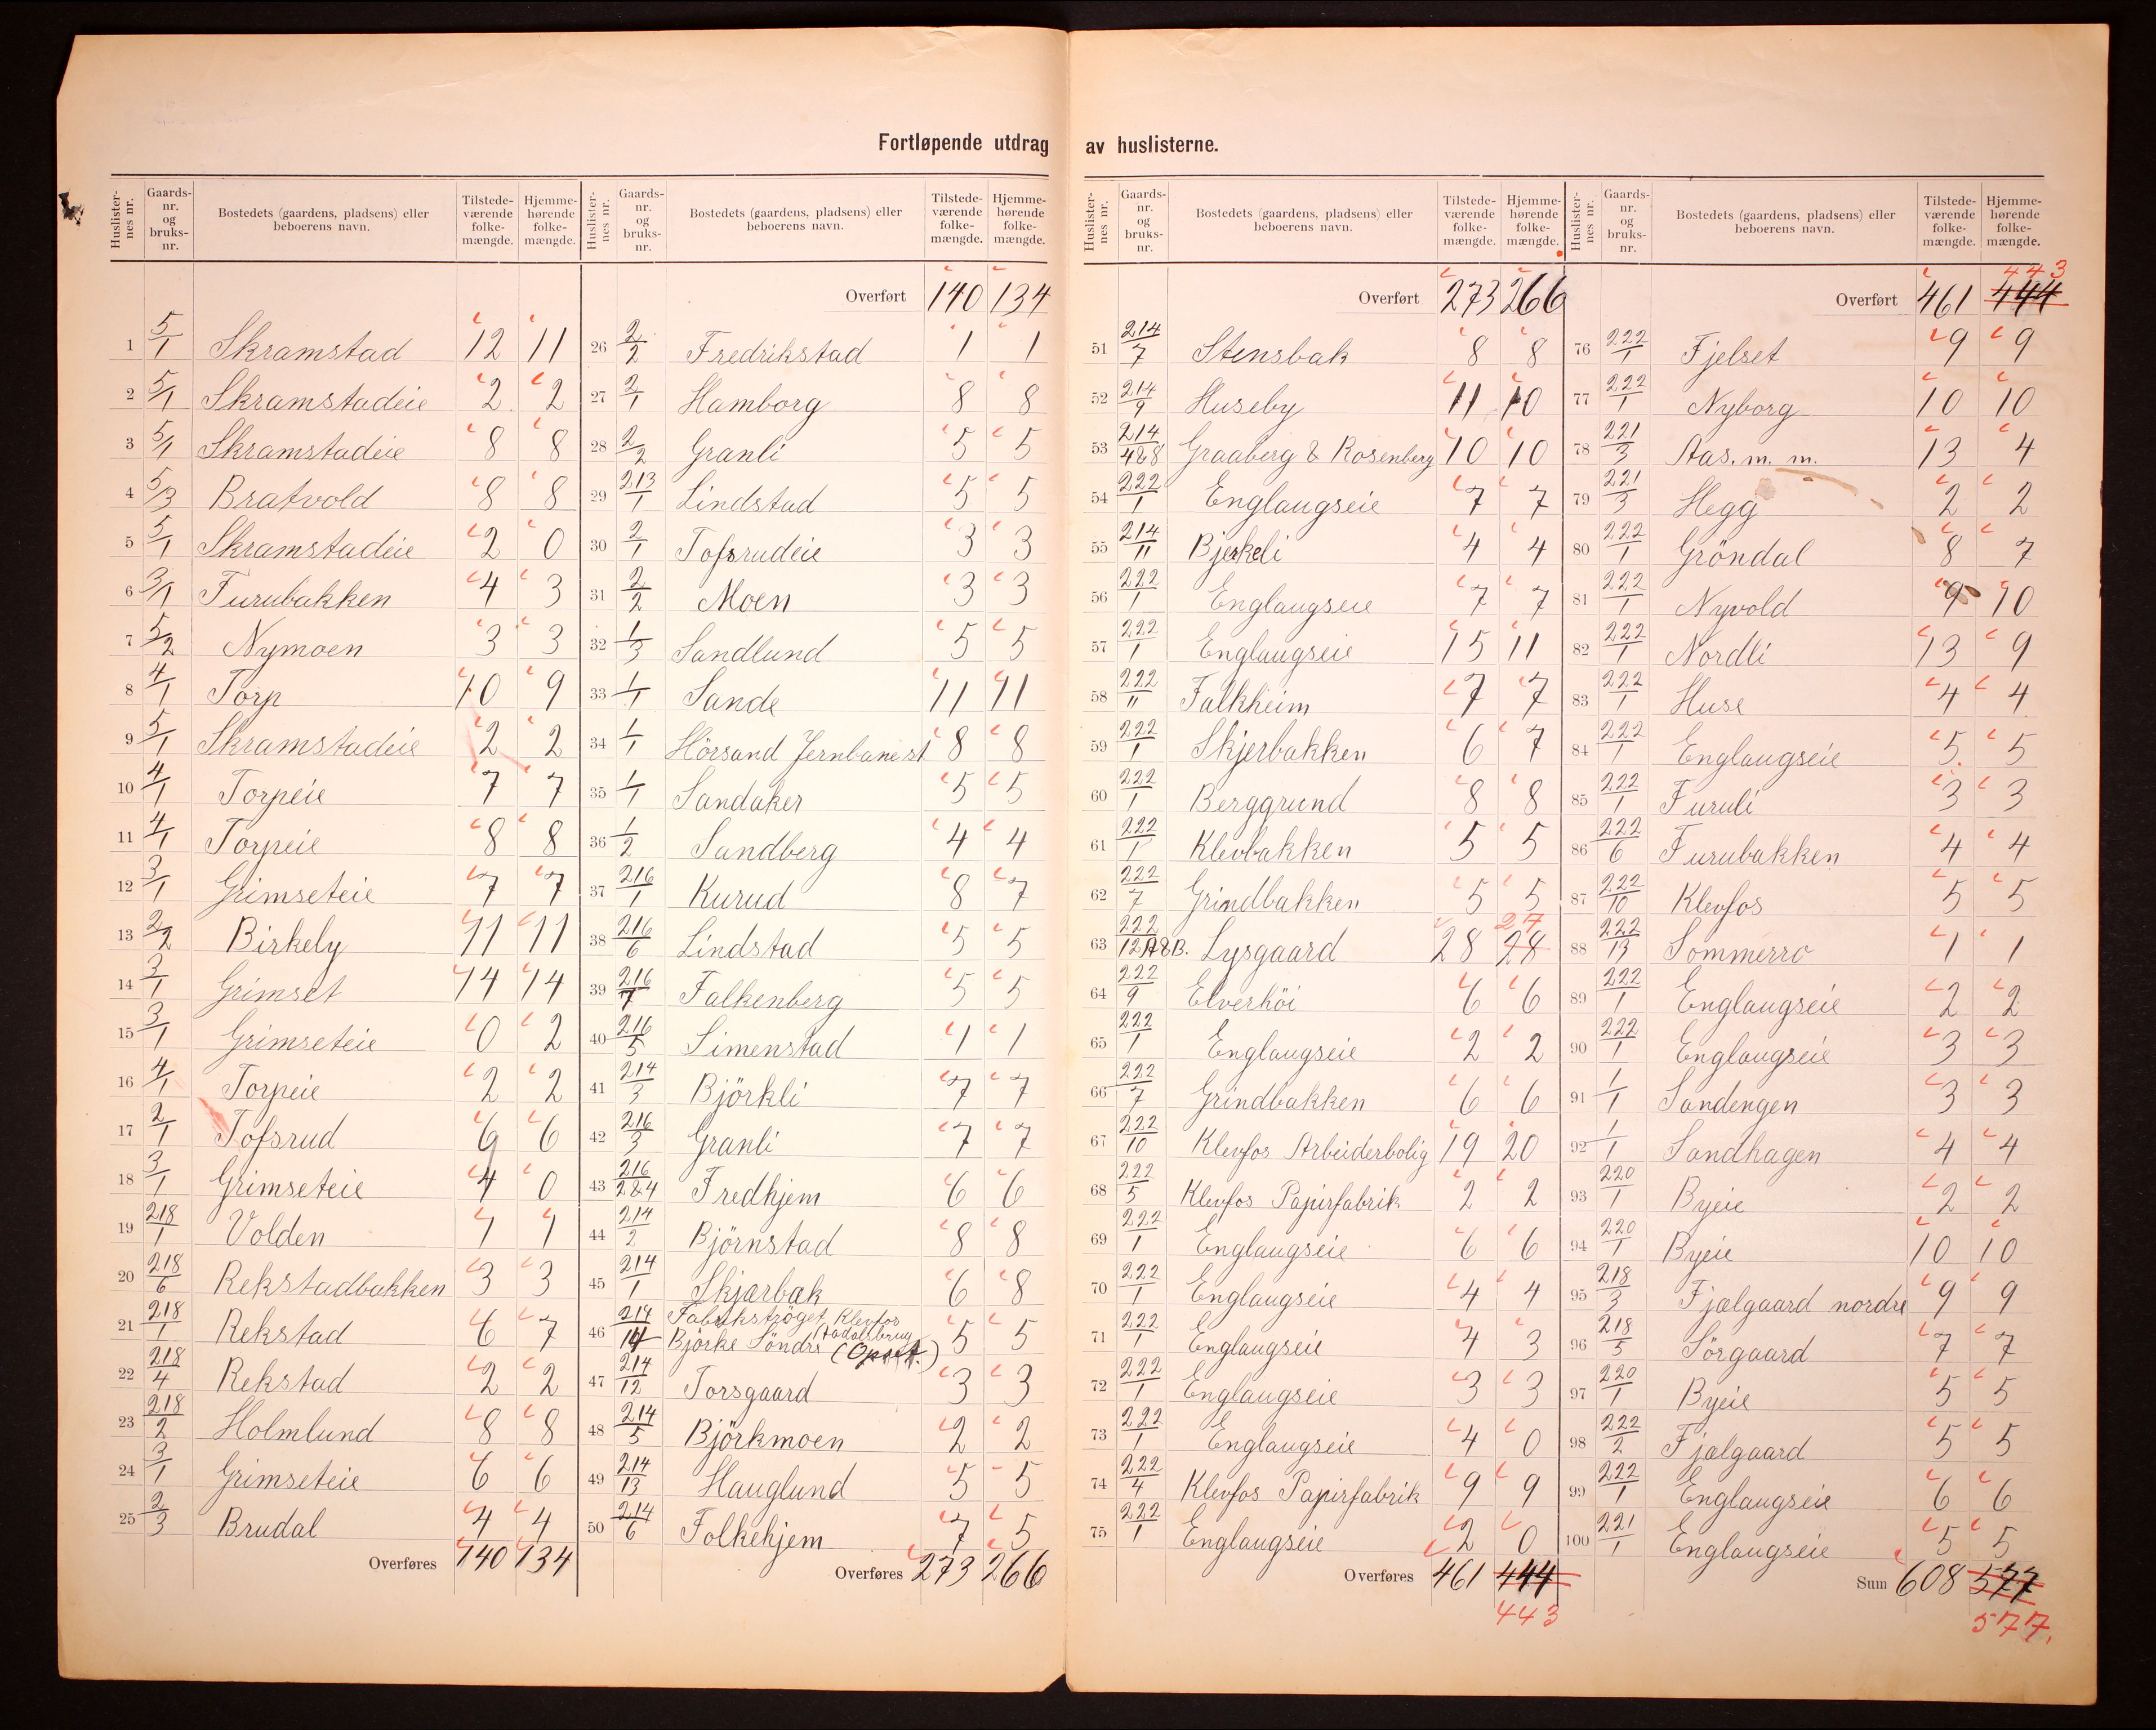 Fortløpende utdrag av huslisterne.
Huslister-nes nr. Gaards-nr. og bruks-nr. Bostedets (gaardens, pladsens) eller beboerens navn. Tilstede-værende folke-mængde. Hjemme-hørende folke-mængde.
1 5/1 Skramstad 12 11
2 5/1 Skramstadeie 2 2
3 5/1 Skramstadeie 8 8
4 5/3 Bratvold 8 8
5 5/1 Skramstadeie 2 0
6 3/1 Furubakken 4 3
7 5/2 Nymoen 3 3
8 4/1 Torp 10 9
9 5/1 Skramstadeie 2 2
10 4/1 Torpeie 7 7
11 4/1 Torpeie 8 8
12 3/1 Grimseteie 7 7
13 2/2 Birkely 11 11
14 3/1 Grimset 14 14
15 3/1 Grimseteie 0 2
16 4/1 Torpeie 2 2
17 2/1 Tofsrud 6 6
18 3/1 Grimseteie 4 0
19 218/1 Volden 1 1
20 218/6 Rekstadbakken 3 3
21 218/1 Rekstad 6 7
22 218/4 Rekstad 2 2
23 218/2 Holmlund 8 8
24 3/1 Grimseteie 6 6
25 2/3 Brudal 4 4
Overføres 140 134
Huslister-nes nr. Gaards-nr. og bruks-nr. Bostedets (gaardens, pladsens) eller beboerens navn. Tilstede-værende folke-mængde. Hjemme-hørende folke-mængde.
Overført 140 134
26 2/2 Fredrikstad 1 1
27 2/1 Hamborg 8 8
28 2/2 Granli 5 5
29 213/1 Lindstad 5 5
30 2/1 Tofsrudeie 3 3
31 2/2 Moen 3 3
32 1/3 Sandlund 5 5
33 1/1 Sande 11 11
34 1/1 Hörsand Jernbanest. 8 8
35 1/1 Sandaker 5 5
36 1/2 Sandberg 4 4
37 216/1 Kurud 8 7
38 216/6 Lindstad 5 5
39 216/7 Falkenberg 5 5
40 216/5 Simenstad 1 1
41 214/3 Björkli 7 7
42 216/3 Granli 7 7
43 216/2&4 Fredhjem 6 6
44 214/2 Björnstad 8 8
45 214/1 Skjærbæk 6 8
46 214/14 Fabrikströget, Klevfos Aadalsbrug
Björke Söndre (Opset.) 5 5
47 214/12 Torsgaard 3 3
48 214/5 Björkmoen 2 2
49 214/13 Hauglund 5 5
50 214/6 Folkehjem 7 5
Overføres 273 266
Huslister-nes nr. Gaards-nr. og bruks-nr. Bostedets (gaardens, pladsens) eller beboerens navn. Tilstede-værende folke-mængde. Hjemme-hørende folke-mængde.
Overført 273 266
51 214/7 Stensbak 8 8
52 214/9 Huseby 11 10
53 214/4&8 Graaberg & Rosenberg 10 10
54 222/1 Englaugseie 7 7
55 214/11 Bjerkeli 4 4
56 222/1 Englaugseie 7 7
57 222/1 Englaugseie 15 11
58 222/11 Falkheim 7 7
59 222/1 Skjerbakken 6 7
60 222/1 Berggrund 8 8
61 222/1 Klevbakken 5 5
62 222/7 Grindbakken 5 5
63 222/12 A&B. Lysgaard 28 28 27
64 222/9 Elverhöi 6 6
65 222/1 Englaugseie 2 2
66 222/7 Grindbakken 6 6
67 222/10 Klevfos Arbeiderbolig 19 20
68 222/5 Klevfos Papirfabrik 2 2
69 222/1 Englaugseie 6 6
70 222/1 Englaugseie 4 4
71 222/1 Englaugseie 4 3
72 222/1 Englaugseie 3 3
73 222/1 Englaugseie 4 0
74 222/4 Klevfos Papirfabrik 9 9
75 222/1 Englaugseie 2 0
Overføres 461 444
443
Huslister-nes nr. Gaards-nr. og bruks-nr. Bostedets (gaardens, pladsens) eller beboerens navn. Tilstede-værende folke-mængde. Hjemme-hørende folke-mængde.
443
Overført 461 444
76 222/1 Fjelset 9 9
77 222/1 Nyborg 10 10
78 221/3 Aas. m. m. 13 4
79 221/3 Hegg 2 2
80 222/1 Gröndal 8 7
81 222/1 Nyvold 9 10
82 222/1 Nordli 13 9
83 222/1 Huse 4 4
84 222/1 Englaugseie 5 5
85 222/1 Furuli 3 3
86 222/6 Furubakken 4 4
87 222/10 Klevfos 5 5
88 222/13 Sommerro 1 1
89 222/1 Englaugseie 2 2
90 222/1 Englaugseie 3 3
91 1/1 Sandengen 3 3
92 1/1 Sandhagen 4 4
93 220/1 Byeie 2 2
94 220/1 Byeie 10 10
95 218/3 Fjælgaard nordre 9 9
96 218/5 Sörgaard 7 7
97 220/1 Byeie 5 5
98 222/2 Fjælgaard 5 5
99 222/1 Englaugseie 6 6
100 221/1 Englaugseie 5 5
Sum 608 577
577.